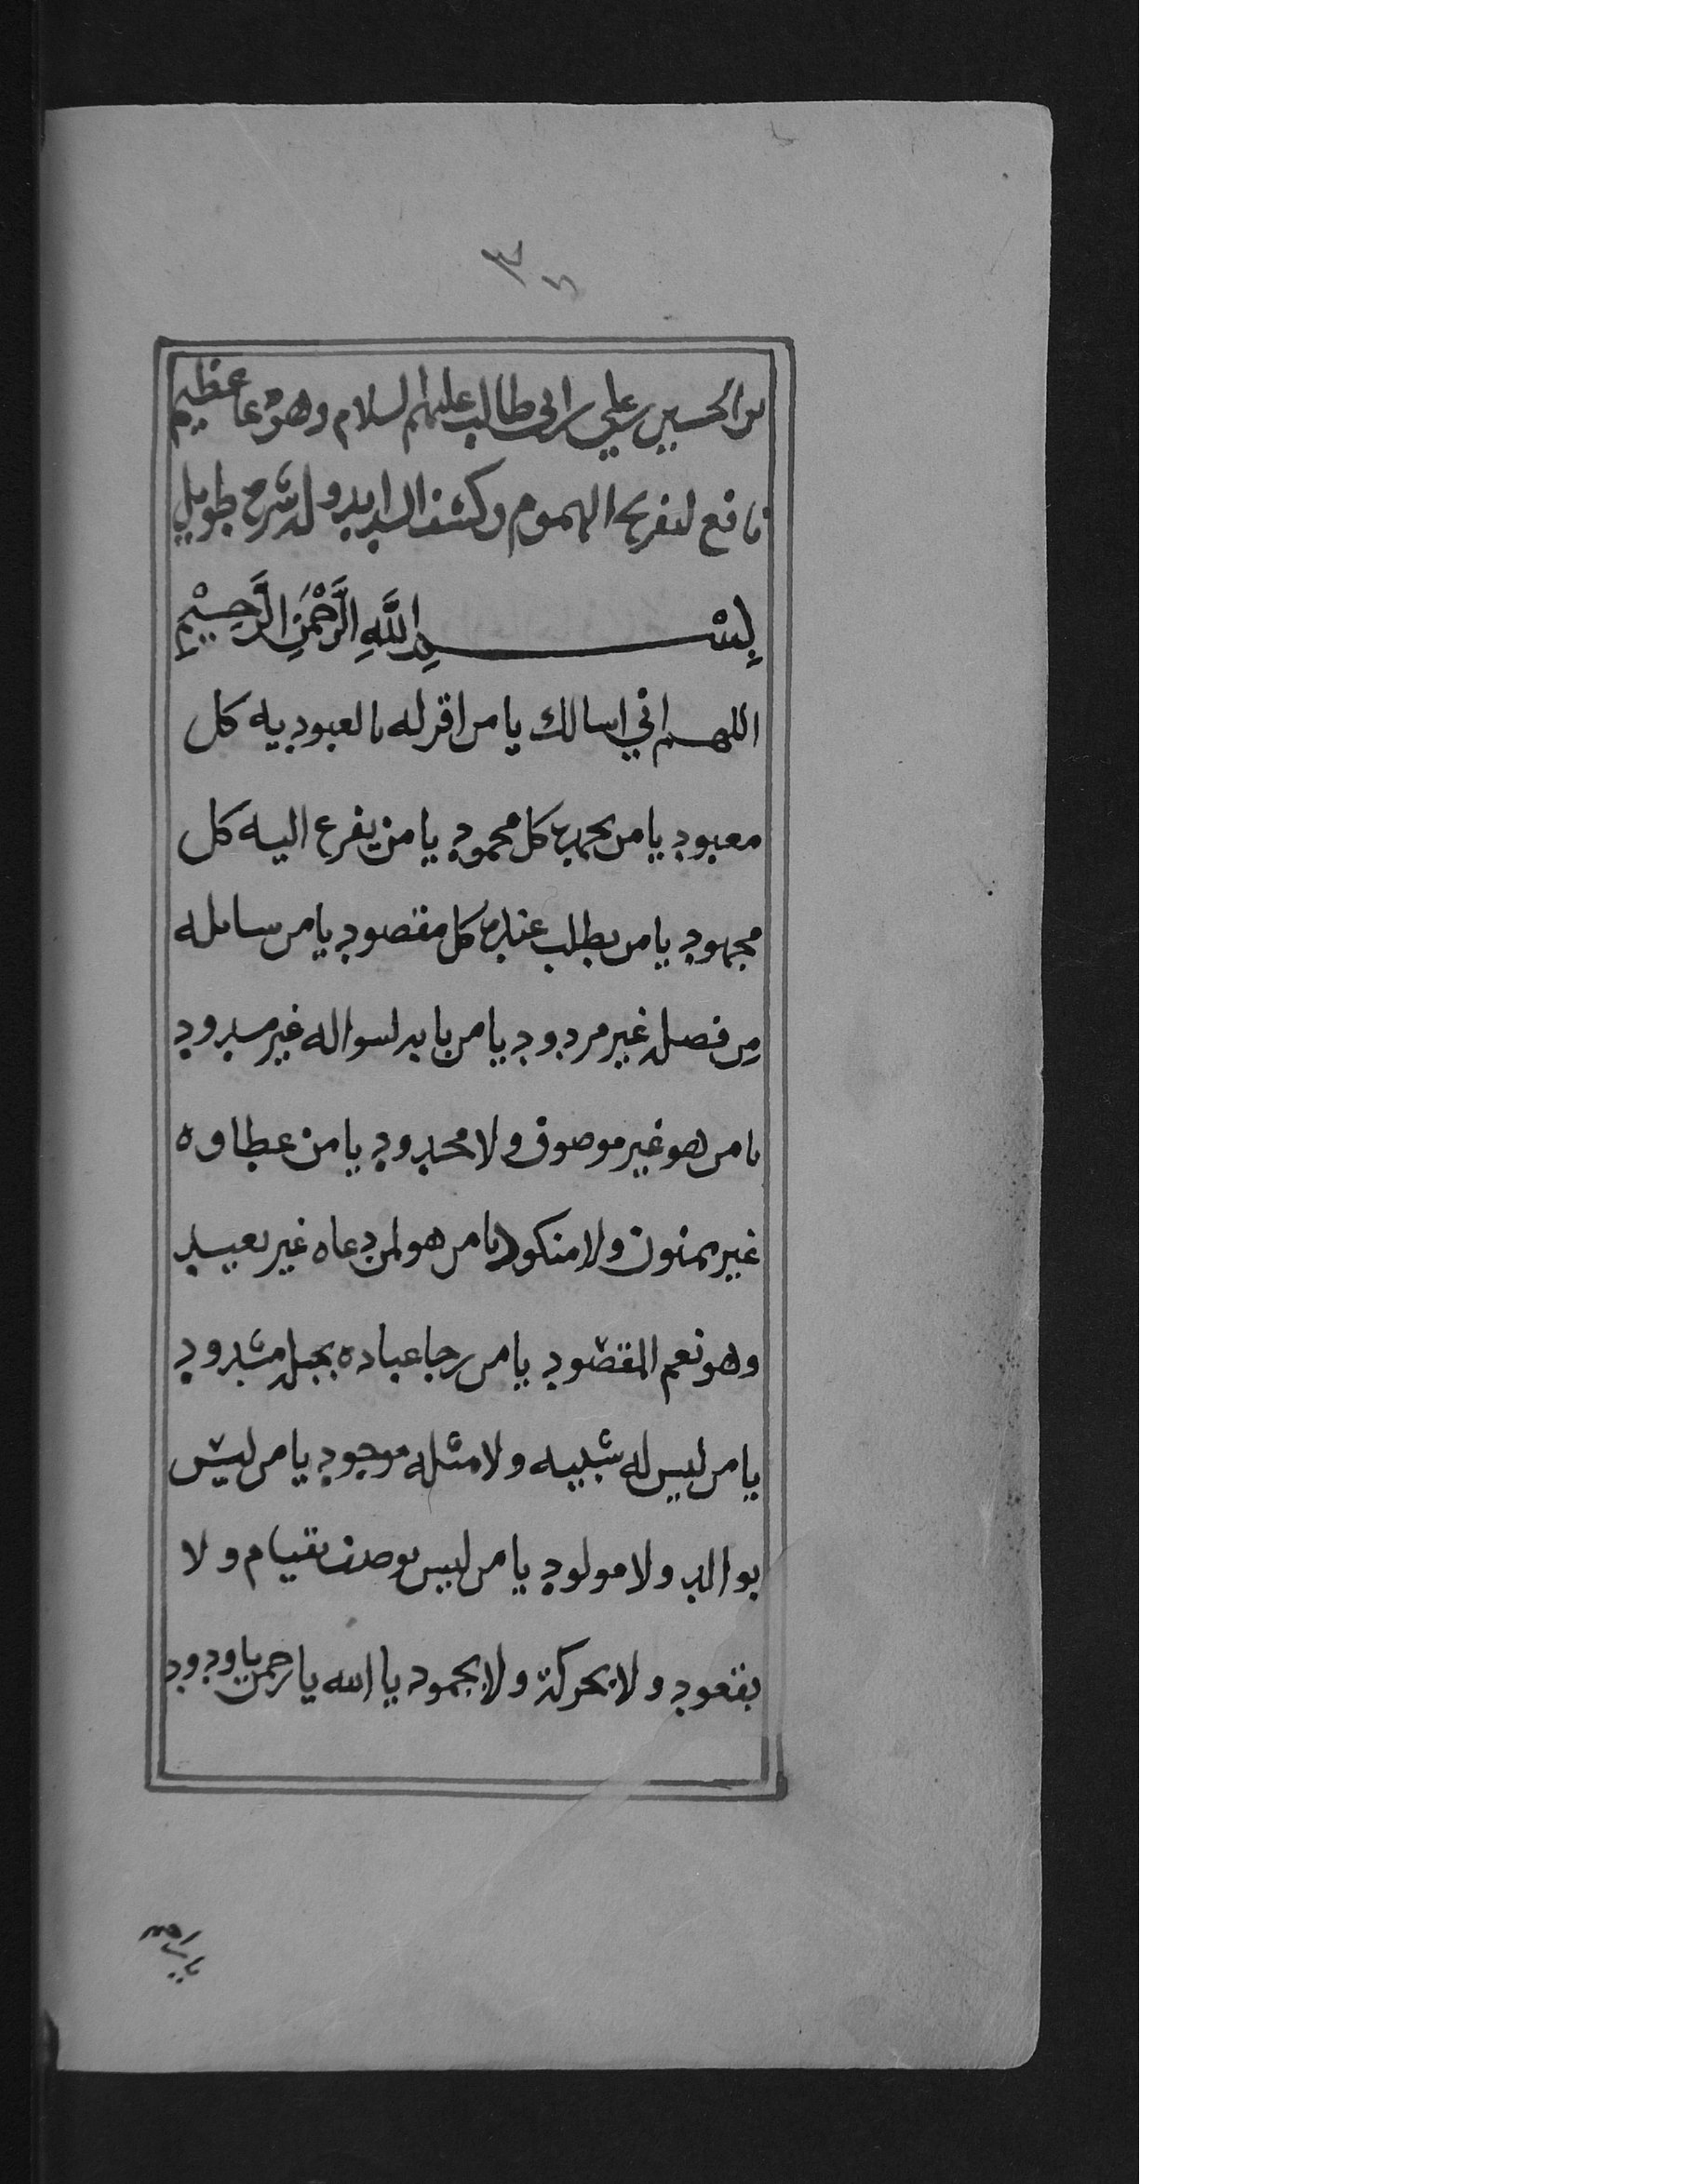 بن الحسين بن علي بن ابي طالب عليهم السلام وهو دعا عظيم
نافع لتفريج الهموم وكشف الشدايد وله شرح طويل
بِسْمِ اللَّهِ الرَّحْمَنِ الرَّحِيْمِ
اللهم اني اسالك يا من اقر له بالعبوديه كل
معبود يا من يحمده كل محمود يا من يفزع اليه كل
مجهود يا من يطلب عنده كل مقصود يا من سايله
من فضله غير مردود يا من بابه لسواله غير مسدود
يا من هو غير موصوف ولا محدود يا من عطاوه
غير ممنون ولا منكود يا من هو لمن دعاه غير بعيد
وهو نعم المقصود يا من رجا عباده بحبله مشدود
يا من ليس له شبيه ولا مثله موجود يا من ليس
بوالد ولا مولود يا من ليس يوصف بقيام ولا
بقعود ولا بحركة ولا بجمود يا الله يا رحمن يا ودود